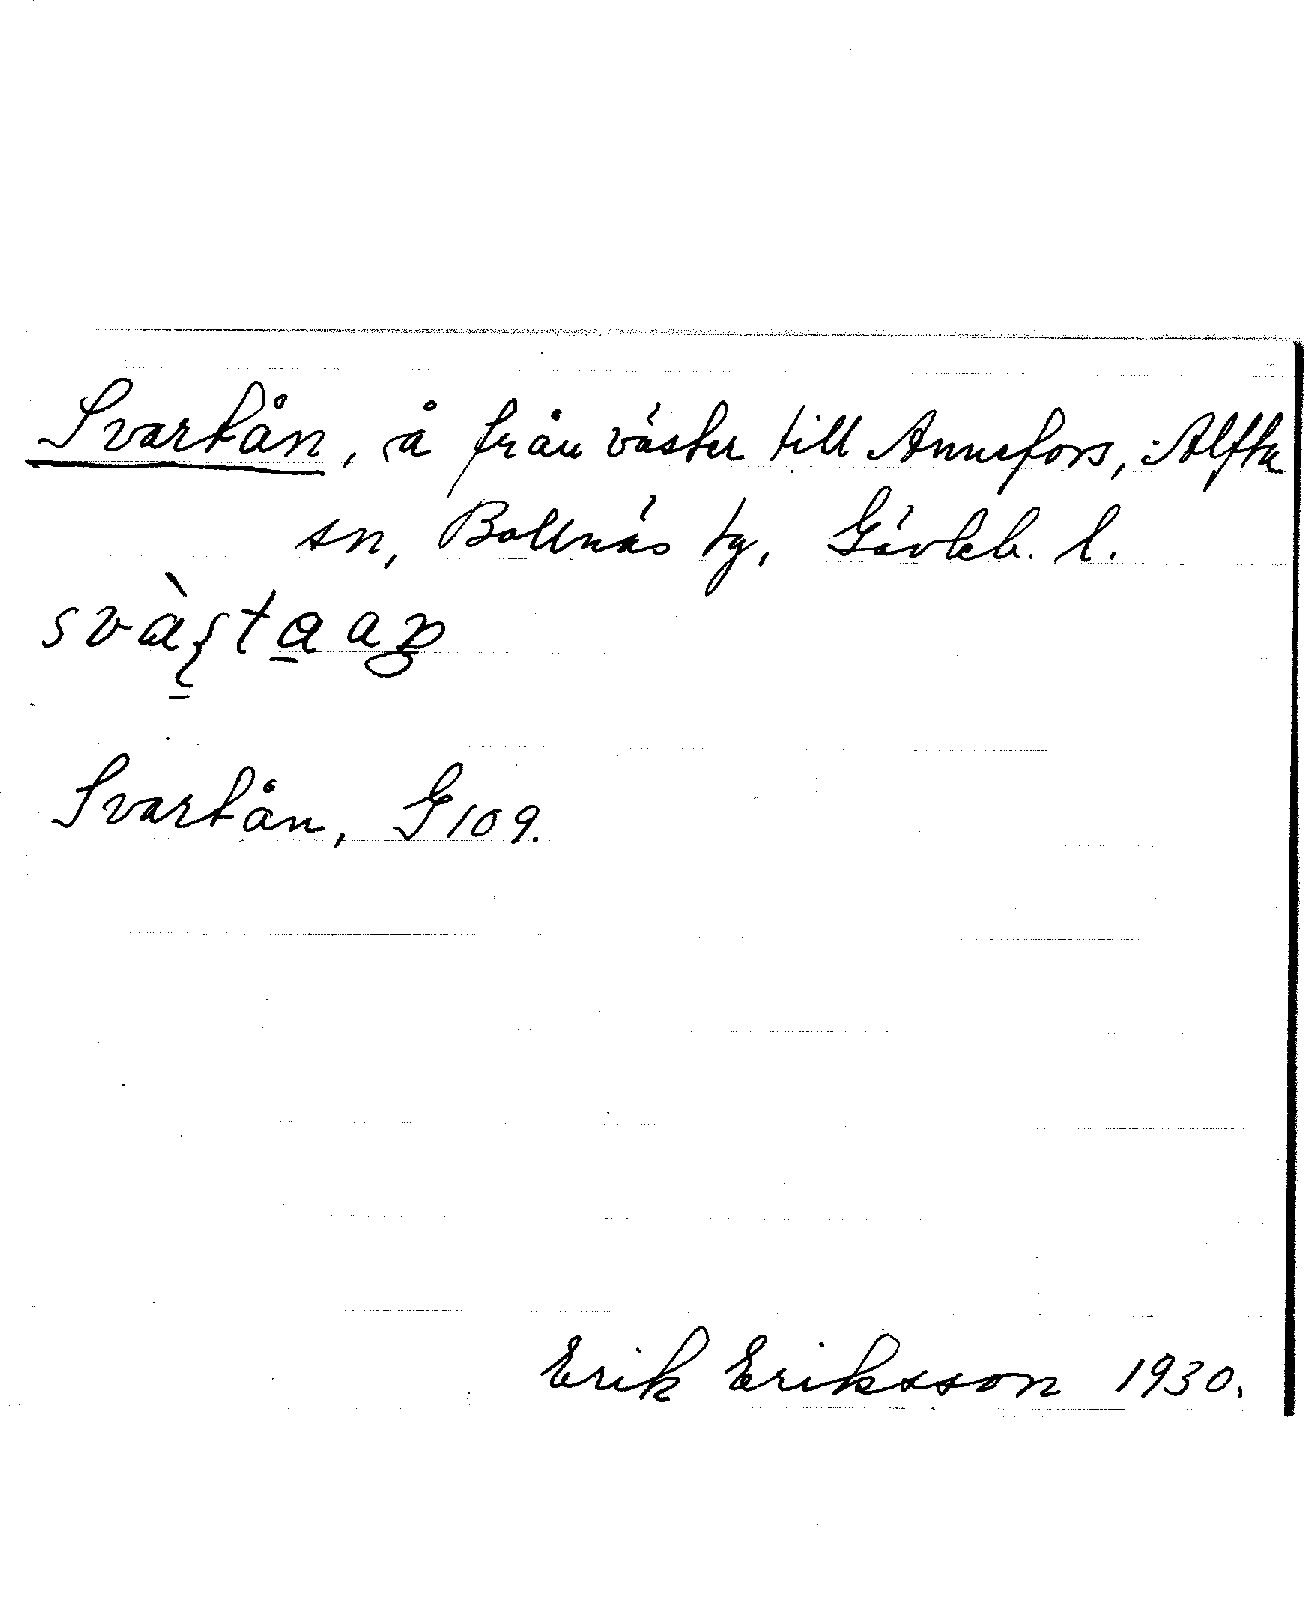 Svartån, å från väster till Annefors, i Alfta
sn, Bollnäs tg, Gävleb. l.
Svartån, G 109.
Erik Eriksson 1930.